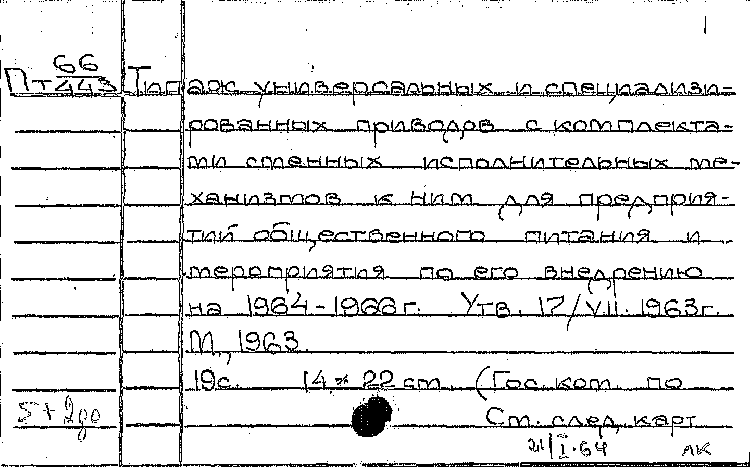 66
Пт443 Типаж универсальных и специализи-
рованных приводов с комплекта-
ми сменных исполнительных ме-
ханизмов к ним для предприя-
тий общественного питания и
мероприятия по его внедрению
на 1964-1966г. Утв. 17/VII. 1963г.
М., 1963.
19с. 14 × 22 см. (Гос. ком. по
5+2до См. след. карт
21/I-64 АК